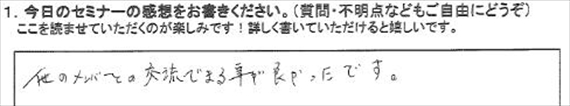 1. 今日のセミナーの感想をお書きください。（質問・不明点などもご自由にどうぞ）
ここを読ませていただくのが楽しみです！詳しく書いていただけると嬉しいです。
他のメンバーとの交流できる事が良かったです。